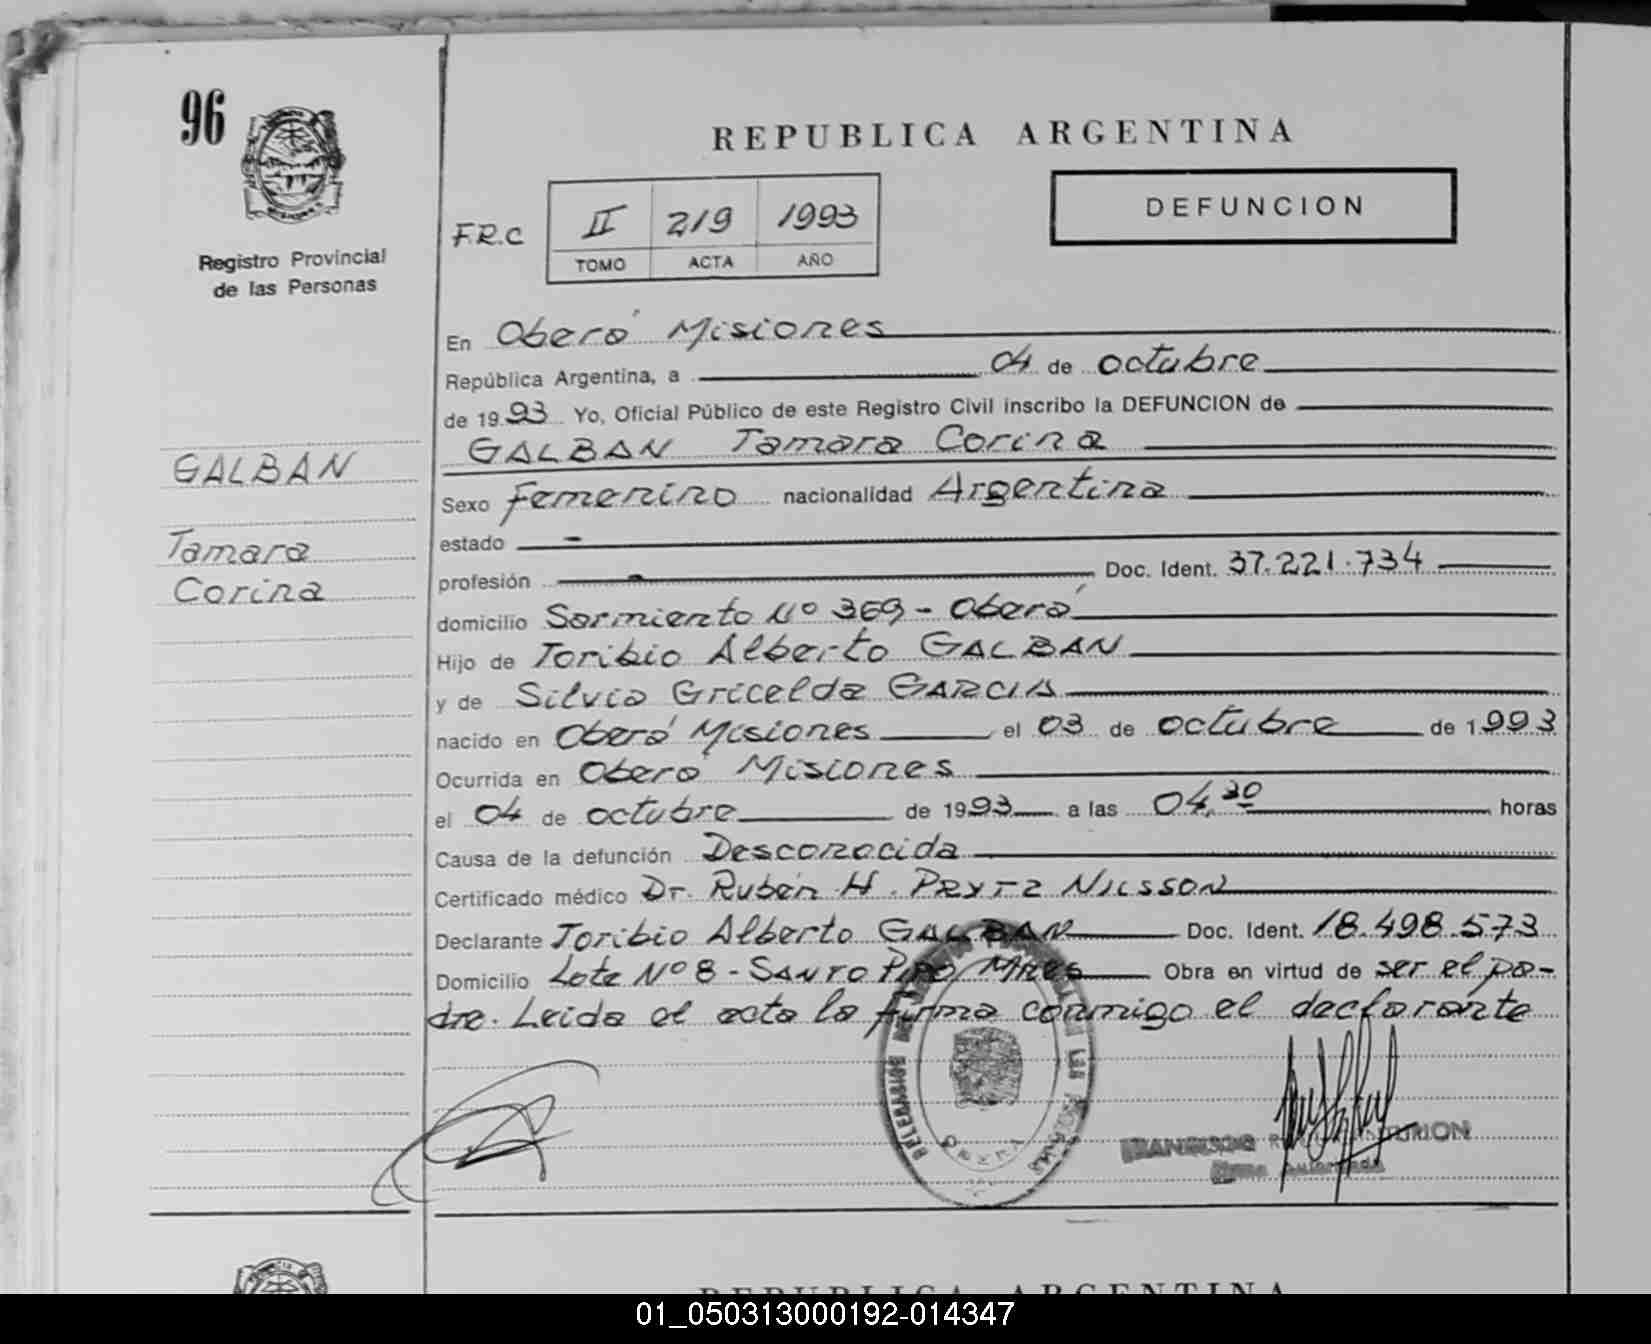 96
REPUBLICA ARGENTINA
DEFUNCION
F.R.C II 219 1993
TOMO ACTA AÑO
Registro Provincial
de las Personas
En Oberá Misiones
República Argentina, a 04 de octubre
de 1993 Yo, Oficial Público de este Registro Civil inscribo la DEFUNCION de
GALBAN Tamara Corina
GALBAN
Tamara
Corina
Sexo Femenino nacionalidad Argentina
estado -
profesión - Doc. Ident. 37.221.734
domicilio Sarmiento Nº 369 - Oberá
Hijo de Toribio Alberto GALBAN
y de Silvia Gricelda GARCIA
nacido en Oberá Misiones el 03 de octubre de 1993
Ocurrida en Oberá Misiones
el 04 de octubre de 1993 a las 04,30 horas
Causa de la defunción Desconocida
Certificado médico Dr. Rubén H. PRYTZ NILSSON
Declarante Toribio Alberto GALBAN Doc. Ident. 18.498.573
Domicilio Lote Nº 8 - SANTO PIPO Mnes Obra en virtud de ser el pa-
dre. Leida el acta la firma conmigo el declarante
DELEGACION DE LAS PERSONAS
OBERA
Firma Autorizada
REPUBLICA ARGENTINA
01_050313000192-014347